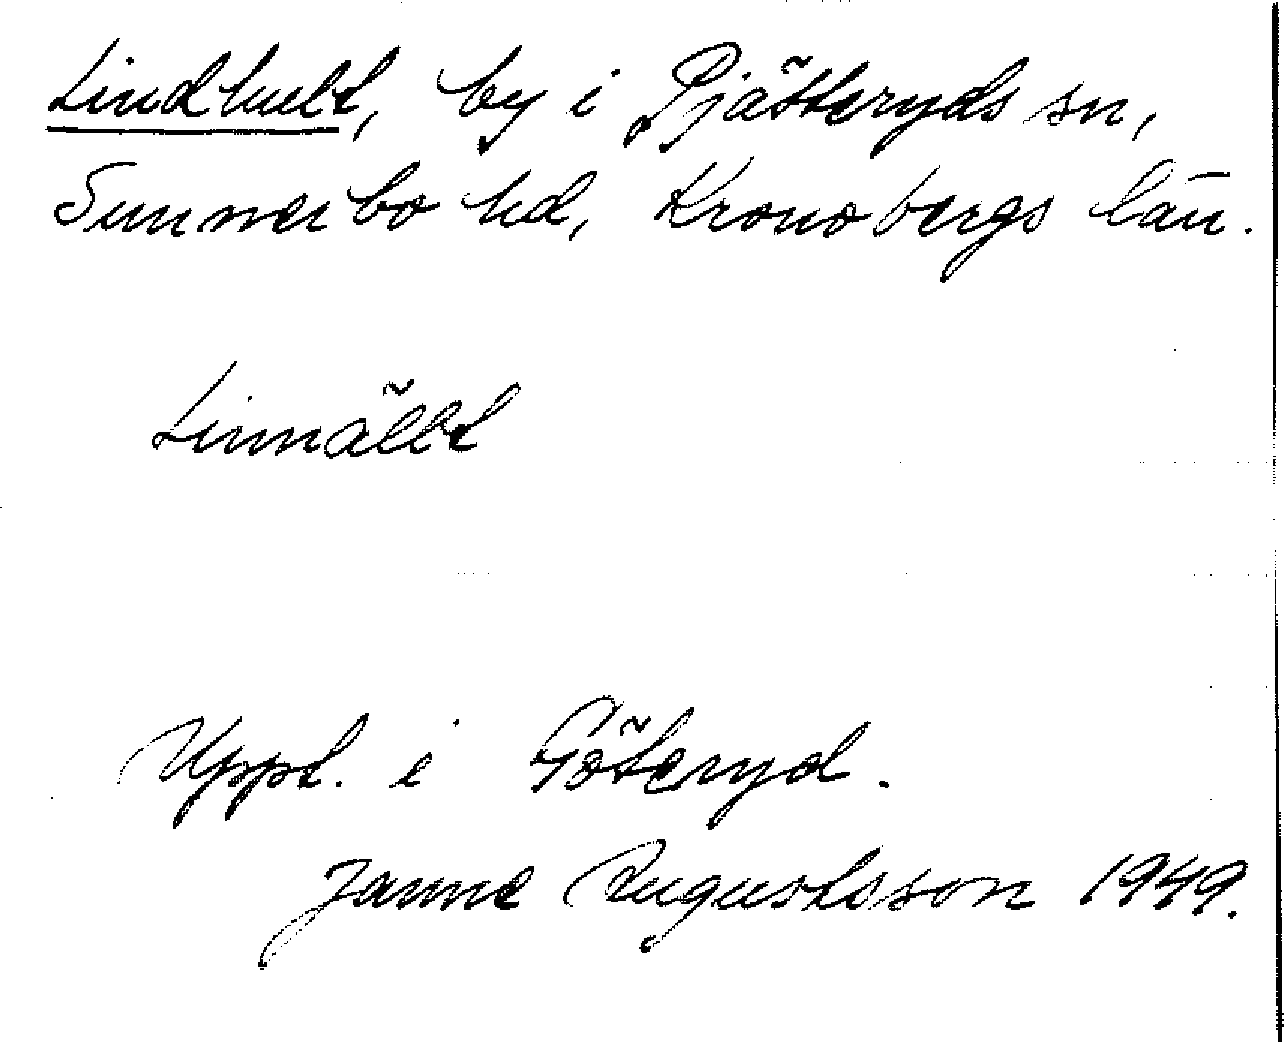 Lindhult, by i Pjätteryds sn,
Sunnerbo hd, Kronobergs län.
Linnällt
Uppt. i Göteryd.
Janne Augustsson 1949.